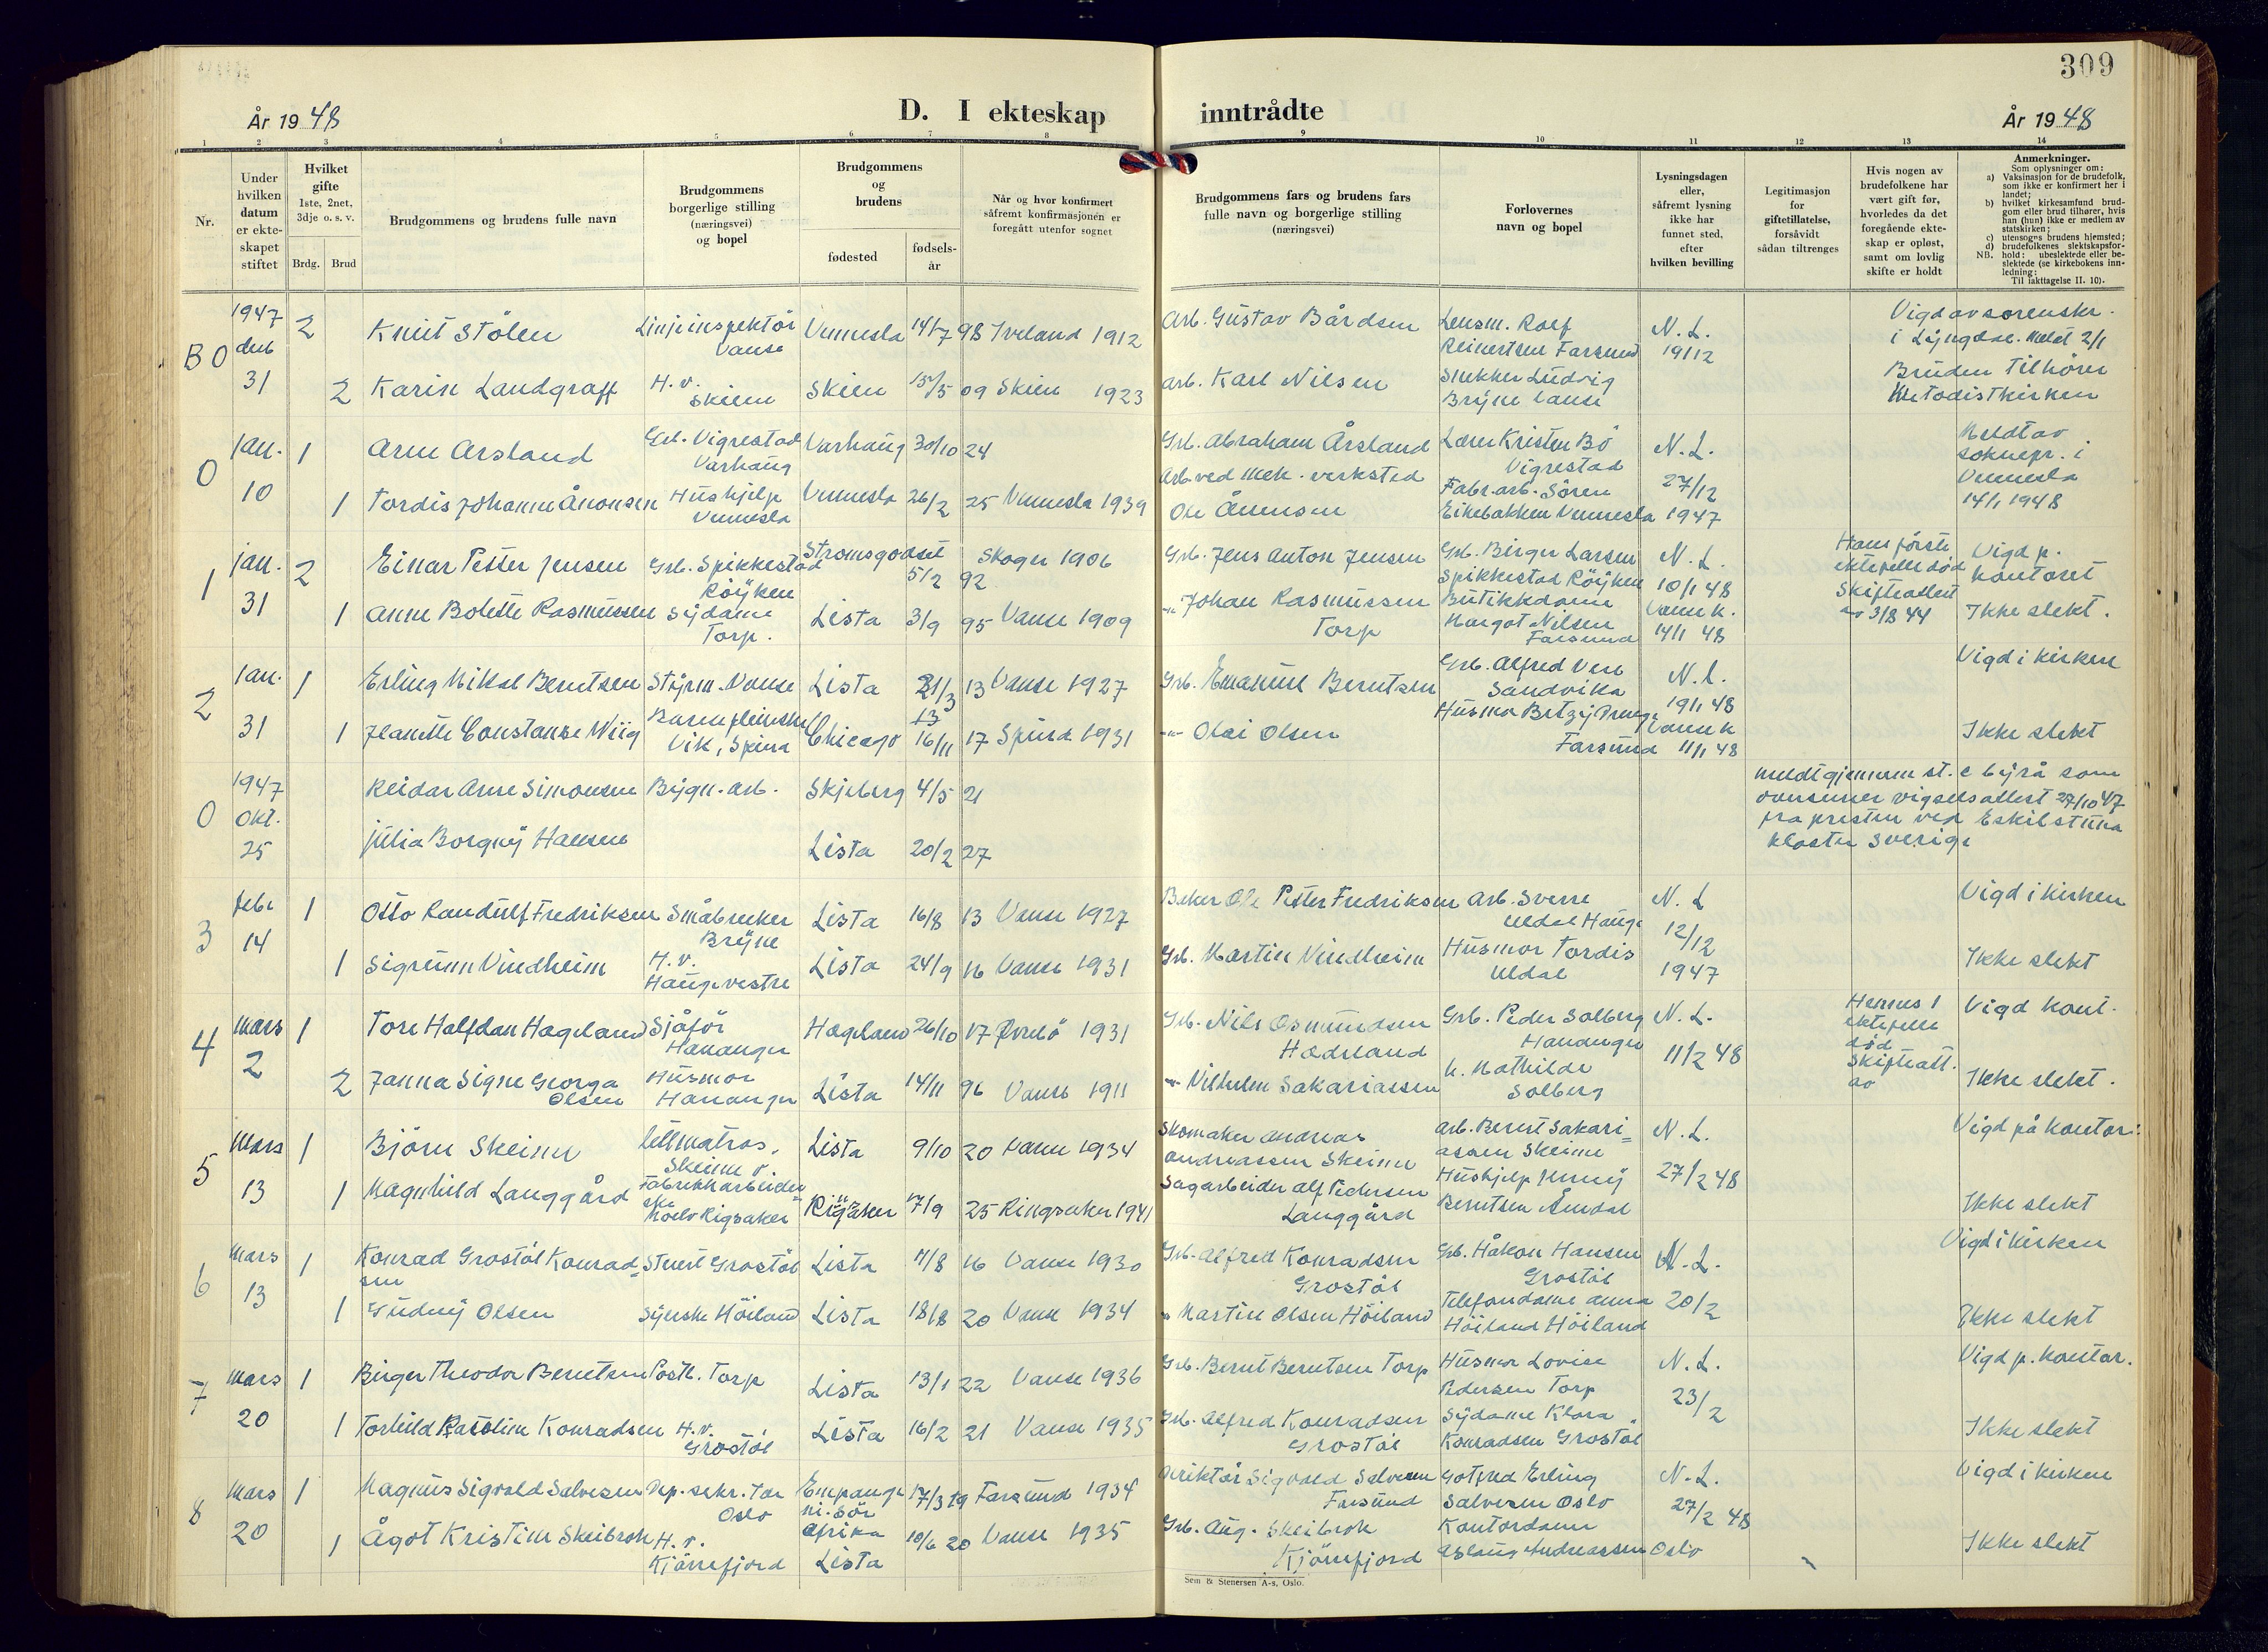 309
År 1948
D. I ekteskap inntrådte
År 1948
1 2 3 4 5 6 7 8 9 10 11 12 13 14
Nr.
Under hvilken datum er ekte-skapet stiftet
Hvilket gifte 1ste, 2net, 3dje o. s. v.
Brdg. Brud
Brudgommens og brudens fulle navn
Brudgommens borgerlige stilling (næringsvei) og bopel
Brudgommens og brudens
fødested
fødsels-år
Når og hvor konfirmert såfremt konfirmasjonen er foregått utenfor sognet
Brudgommens fars og brudens fars fulle navn og borgerlige stilling (næringsvei)
Forlovernes navn og bopel
Lysningsdagen eller, såfremt lysning ikke har funnet sted, efter hvilken bevilling
Legitimasjon for giftetillatelse, forsåvidt sådan tiltrenges
Hvis nogen av brudefolkene har vært gift før, hvorledes da det foregående ekte-skap er opløst, samt om lovlig skifte er holdt
Anmerkninger.
Som oplysninger om:
a) Vaksinasjon for de brudefolk, som ikke er konfirmert her i landet;
b) hvilket kirkesamfund brud-gom eller brud tilhører, hvis han (hun) ikke er medlem av statskirken;
c) utensogns brudens hjemsted;
d) brudefolkenes slektskapsfor-hold: ubeslektede eller be-slektede (se kirkebokens inn-ledning:
NB. Til iakttagelse II. 10).
B 0 1947 31 2 Knut Stölen Linjeinspektör Vanse Vennesla 14/7 98 Iveland 1912 Arb. Gustav Bårdsen Lensm. Rolf Reinertsen Farsund N. L. 19112 Vigd av sorenskr. i Lyngdal. Meldt 2/1
2 Karin Landgraff H. v. Skien Skien 15/5 09 Skien 1923 arb. Karl Nilsen Snekker Ludvig Bryne Vanse Bruden tilhører Metodistkirken
0 jan. 10 1 Arne Arsland Grb. Vigrestad Varhaug Varhaug 30/10 24 Grb. Abraham Årsland Lærer Kristen Bö Vigrestad N. L. 27/12 1947 Meldt av soknepr. i Vennesla 14/1 1948
1 Tordis Johanne Ånonsen Hushjelp Vennesla Vennesla 26/2 25 Vennesla 1939 Arb. ved mek. verksted Ole Ånonsen Fabr. arb. Sören Eikebakken Vennesla
1 jan. 31 2 Einar Petter Jensen Grb. Spikkestad Röyken Stromsgodset 5/2 92 Skoger 1906 Grb. Jens Anton Jensen Grb. Birger Larsen Spikkestad Röyken N. L. 10/1 48 Hans förste ektefelle död Skifteattest av 3/8 44 Vigd p. kontoret
1 Anne Bolette Rasmussen Sydame Torp. Lista 3/9 95 Vanse 1909 -"- Johan Rasmussen Torp Butikkdame Margot Nilsen Farsund Vanse k. 14/1 48 Ikke slekt.
2 jan. 31 1 Erling Mikal Berntsen Styrm. Vanse Lista 21/3 13 Vanse 1927 Grb. Emanuel Berntsen Grb. Alfred Vere Sandvika N. L. 19/1 48 Vigd i kirken
1 Jeanette Constanse Wiig Vik, Spind Chicago 16/11 17 Spind 1931 -"- Olai Olsen Farsund Vanse k 11/1 48 Ikke slekt
0 1947 okt. 25 Reidar Arne Simonsen Bygn. arb. Skjeberg 4/5 21 Meldt gjennom st. c byrå som oversender vigselsattest 27/10 47 fra presten ved Eskilstuna kloster Sverige
Julia Borgny Hansen Lista 20/2 27
3 febr 14 1 Otto Randulf Fredriksen Småbruker Bryne Lista 16/8 13 Vanse 1927 Baker Ole Petter Fredriksen Arb. Sverre Uldal Hauge N. L 12/12 1947 Vigd i kirken
1 Sigrunn Vindheim H. v. Hauge vestre Lista 24/9 16 Vanse 1931 Grb. Martin Vindheim Husmor Tordis Uldal Ikke slekt
4 mars 2 1 Tore Halfdan Hageland Sjåför Hananger Hageland 26/10 17 Øvrebö 1931 Grb. Nils Osmundsen Grb. Peder Solberg Hananger N. L. 11/2 48 Hennes 1 ektefelle död Skifteatt. av Vigd kont.
2 Janna Signe Georga Olsen Husmor Hananger Lista 14/11 96 Vanse 1911 -"- Vilhelm Sakariassen h. Mathilde Solberg Ikke slekt.
5 mars 13 1 Björn Skeime Lettmatros. Skeime v. Lista 9/10 20 Vanse 1934 Skomaker Andreas Andreassen Skeime Arb. Bernt Sakari=assen Skeime N. L. 27/2 48 Vigd på kontor.
1 Magnhild Langgård Fabrikkarbeider=ske Ringsaker 17/9 25 Ringsaker 1941 Sagarbeider Alf Pedersen Langgård Hushjelp Jenny Berntsen Åmdal Ikke slekt
6 mars 13 1 Konrad Grostöl Konrad=sen Stuert Grostöl Lista 11/8 16 Vanse 1930 Grb. Alfred Konradsen Grostöl Grb. Håkon Hansen Grostöl N. L. 20/2 Vigd i kirken
1 Gudny Olsen Syerske Höiland Lista 18/8 20 Vanse 1934 " Martin Olsen Höiland Telefondame Anna Höiland Höiland Ikke slekt
7 mars 20 1 Birger Theodor Berntsen Postb. Torp Lista 13/1 22 Vanse 1936 Grb. Bernt Berntsen Torp Husmor Lovise Pedersen Torp N. L. 23/2 Vigd p. kontor.
1 Torhild Karoline Konradsen H. v. Grostöl Lista 16/2 21 Vanse 1935 Grb. Alfred Konradsen Grostöl Sydame Klara Konradsen Grostöl Ikke slekt
8 mars 20 1 Magnus Sigvald Salvesen Oslo ni. Sör Afrika 17/3 19 Farsund 1934 Direktör Sigvald Salvesen Farsund Gotfred Erling Salvesen Oslo N. L. 27/2 48 Vigd i kirken
1 Ågot Kristine Skeibrok H. v. Kjörrefjord Lista 10/6 20 Vanse 1935 Grb. Aug. Skeibrok Kjörrefjord Kontordame Aslaug Andreassen Oslo Ikke slekt
Sem & Stenersen A-s, Oslo.